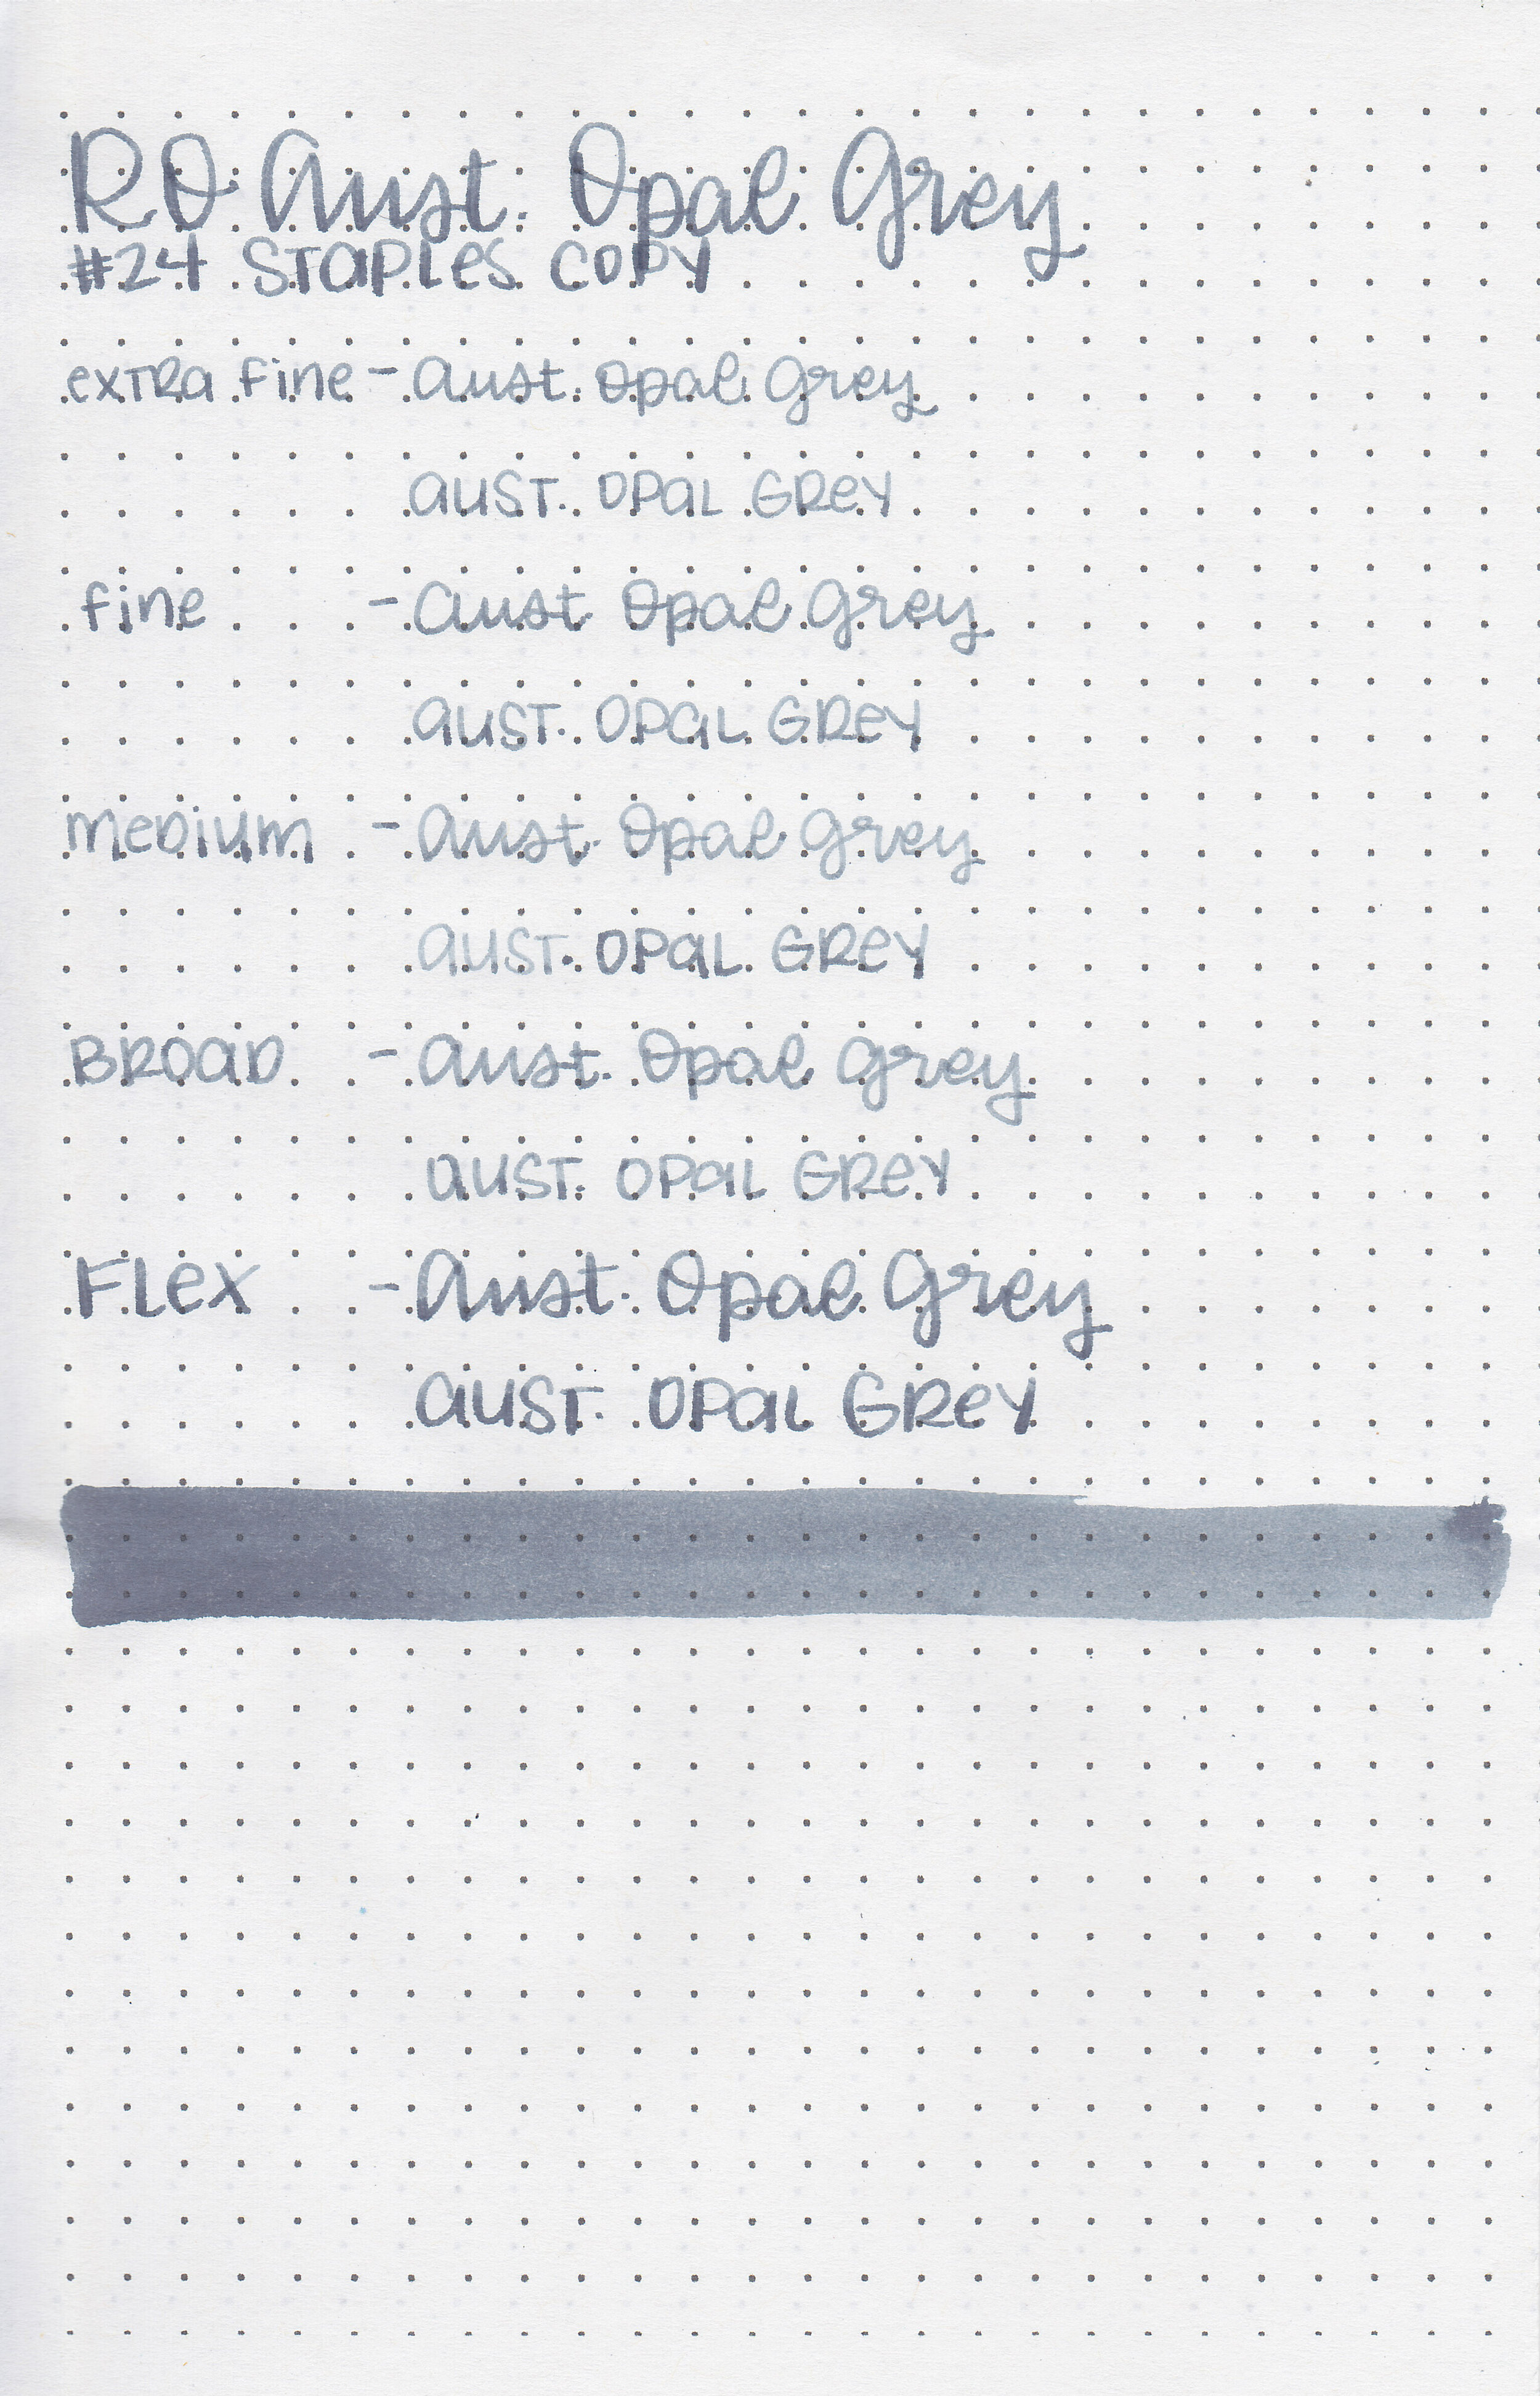 RO Aust. Opal Grey
#24 STAPLES COPY
extra fine - Aust. Opal Grey
AUST. OPAL GREY
fine - Aust Opal Grey
AUST. OPAL GREY
medium - Aust. Opal Grey
AUST. OPAL GREY
BROAD - Aust. Opal Grey
AUST. OPAL GREY
FLex - Aust. Opal Grey
AUST. OPAL GREY